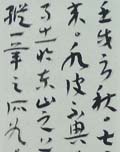 壬戌之秋。七
来。水波不興
月出於东山之上
縱一葦之所如